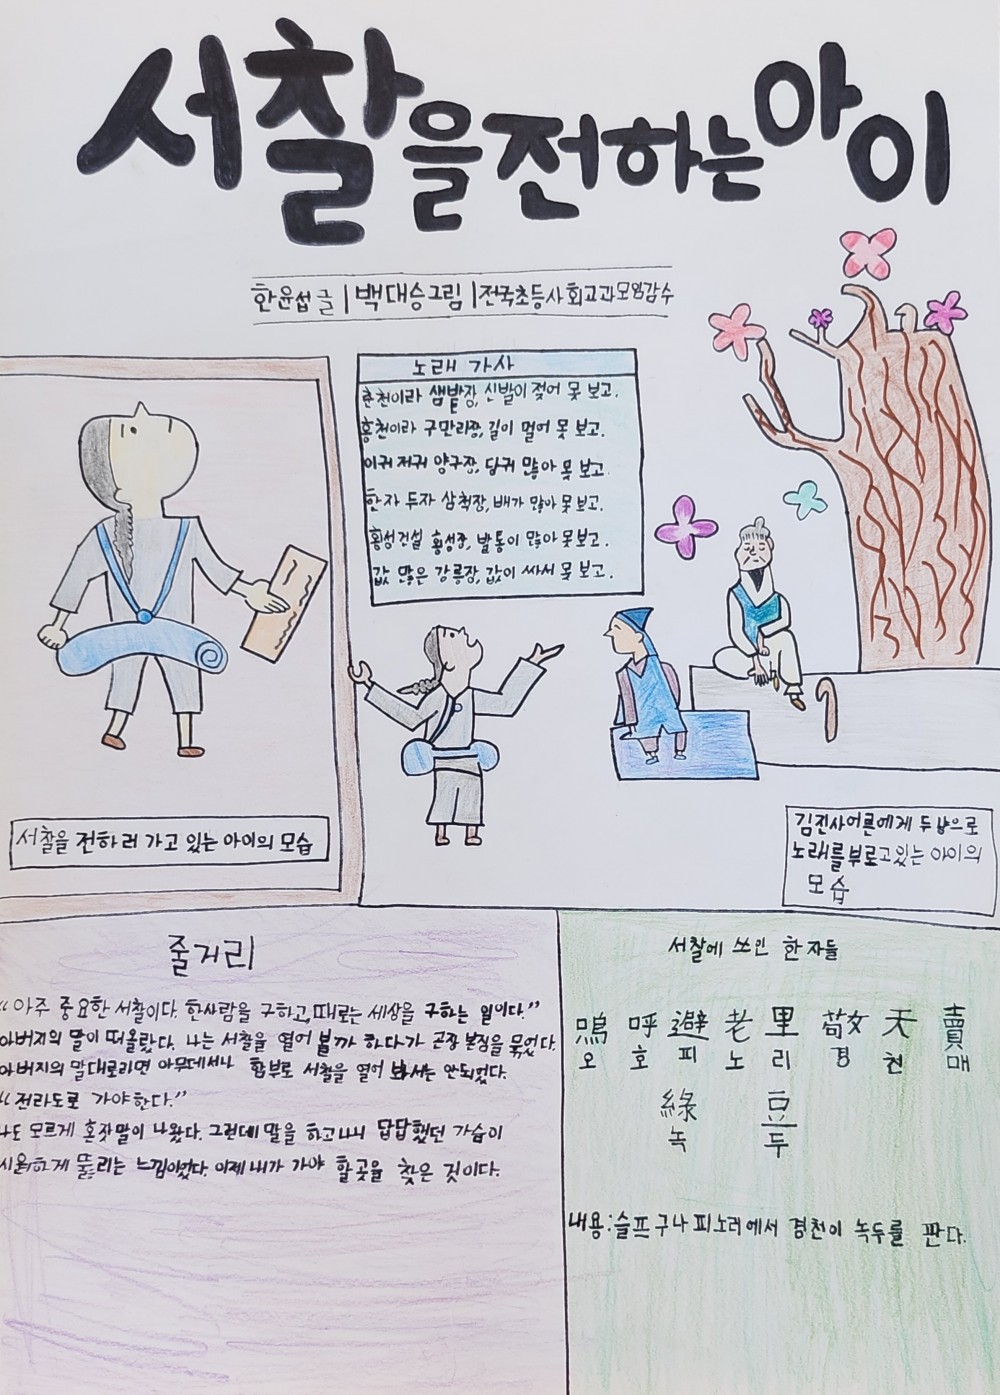 서찰을전하는아이
한윤섭 글 | 백대승그림 | 전국초등사회교과모임감수
노래 가사
춘천이라 샘밭장, 신발이 젖어 못 보고.
홍천이라 구만리장, 길이 멀어 못 보고.
이귀 저귀 양구장, 당귀 많아 못 보고.
한자 두자 삼척장, 배가 많아 못 보고.
횡성건설 횡성장, 발통이 많아 못보고.
값 많은 강릉장, 값이 싸서 못 보고.
서찰을 전하러 가고 있는 아이의 모습
김진사어른에게 두냥으로
노래를부르고있는 아이의
모습
줄거리
“아주 중요한 서찰이다. 한사람을 구하고, 때로는 세상을 구하는 일이다.”
아버지의 말이 떠올랐다. 나는 서찰을 열어 볼까 하다가 곤장 본짐을 묶었다.
아버지의 말대로라면 아무데서나 함부로 서찰을 열어 봐서는 안되었다.
“전라도로 가야한다.”
나도 모르게 혼잣말이 나왔다. 그런데 말을 하고나니 답답했던 가슴이
시원하게 뚫리는 느낌이었다. 이제 내가 가야 할곳을 찾은 것이다.
서찰에 쓰인 한자들
嗚 呼 避 老 里 敬 天 賣
오 호 피 노 리 경 천 매
綠 豆
녹 두
내용:슬프구나 피노리에서 경천이 녹두를 판다.